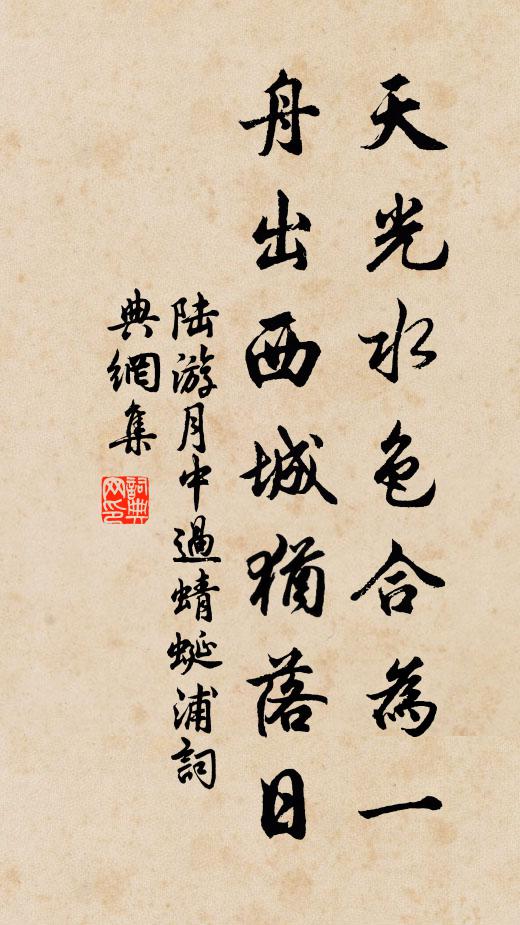 天光水色合為一
舟出西城猶落日
陆游月中過蜻蜓浦詞
典網集
詞典
网印